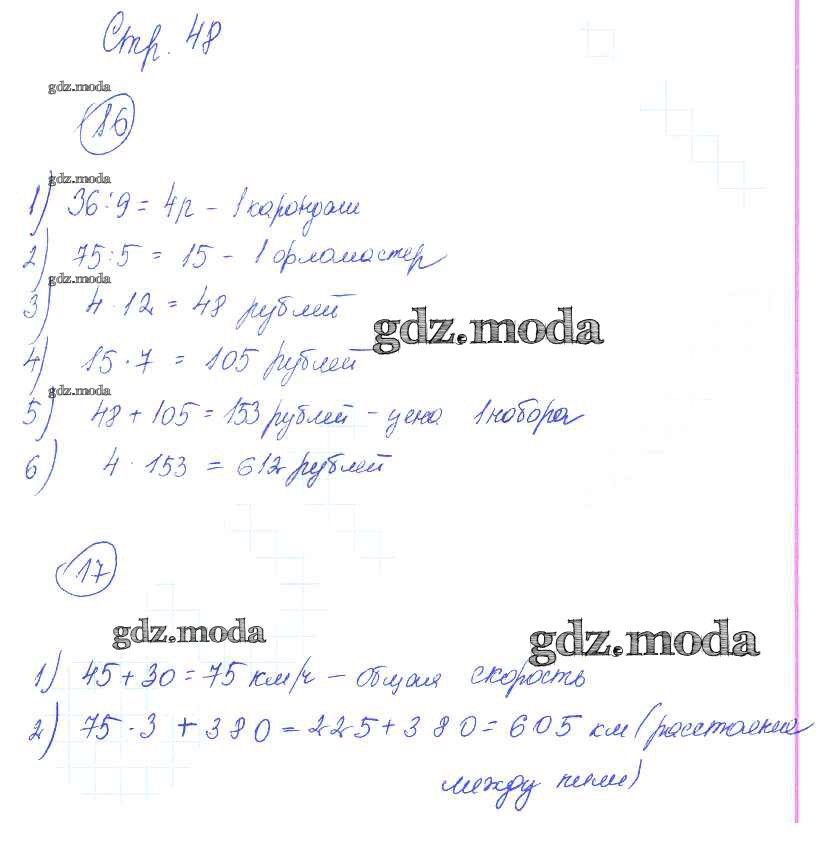 Стр. 48
gdz.moda
16
gdz.moda
1) 36:9 = 4р - 1 карондаш
2) 75:5 = 15 - 1 фломастер
gdz.moda
3) 4 · 12 = 48 рублей
gdz.moda
4) 15 · 7 = 105 рублей
gdz.moda
5) 48 + 105 = 153 рублей - цена 1 набора
6) 4 · 153 = 612 рублей
17
gdz.moda
gdz.moda
1) 45 + 30 = 75 км/ч - общая скорость
2) 75 · 3 + 380 = 225 + 380 = 605 км (расстояние
между ними)